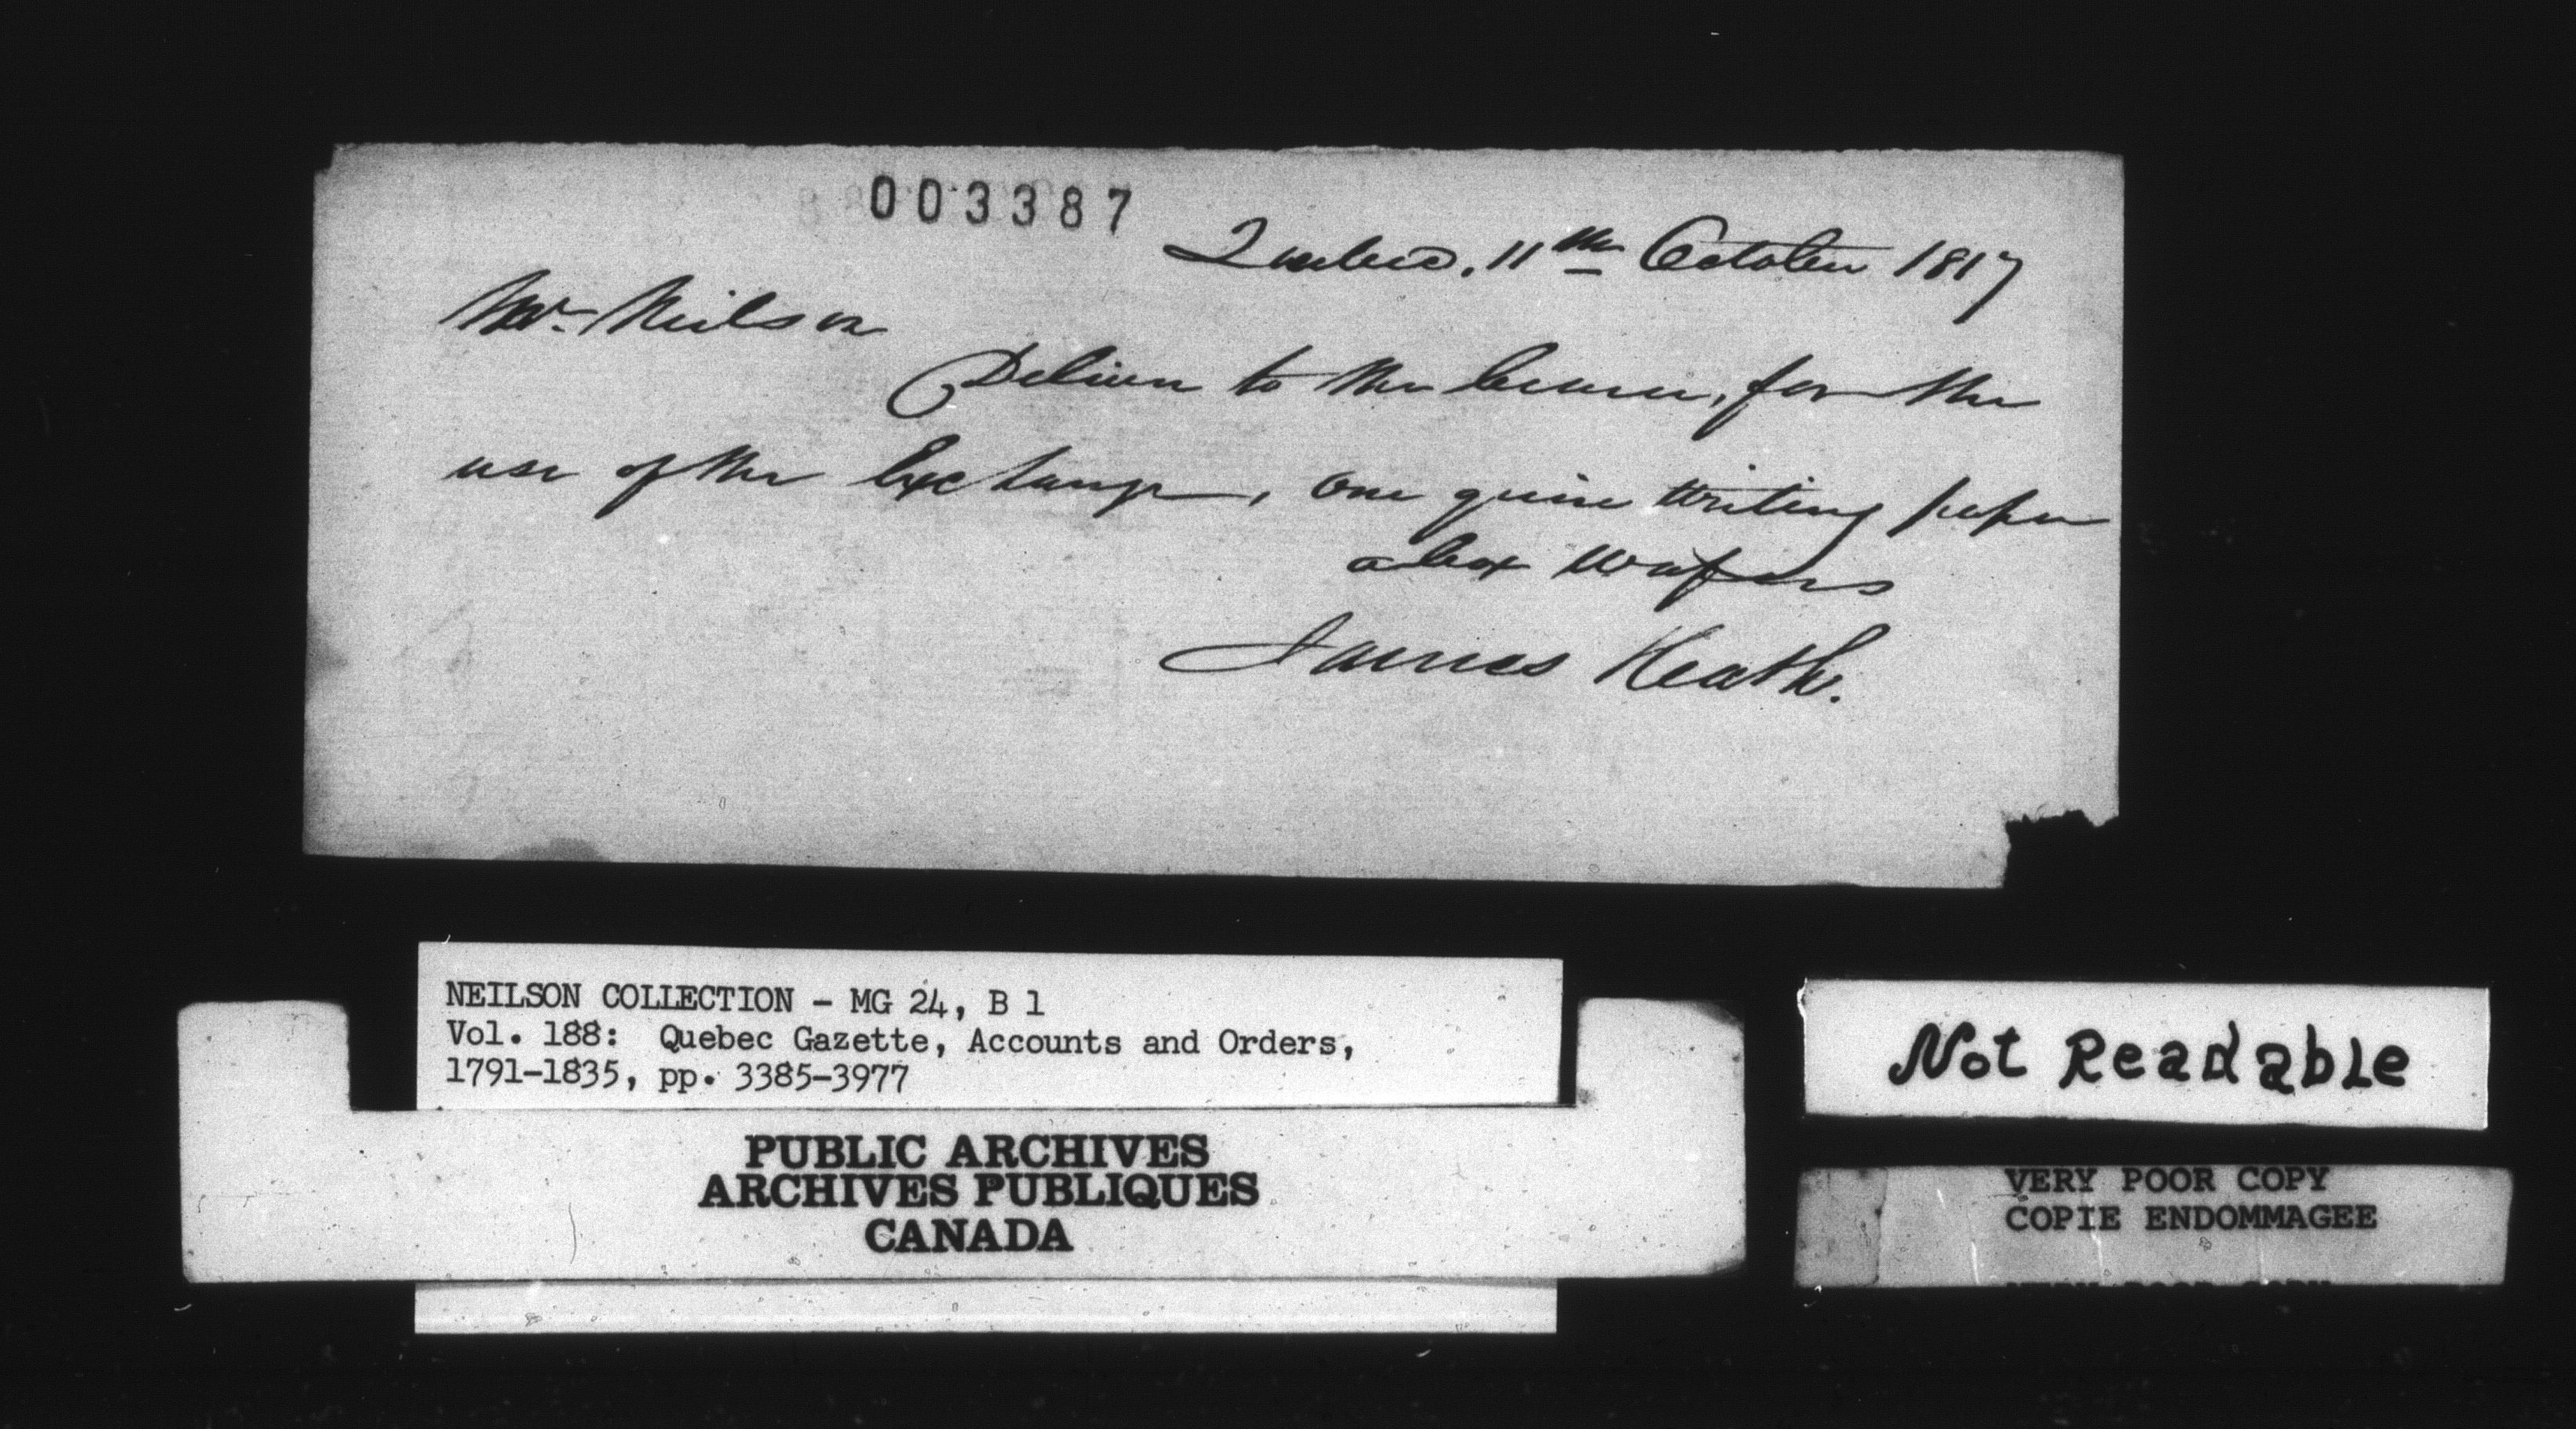 003387
Quebec, 11th October 1817
Mr. Neilson
Deliver to the bearer, for the
use of the Exchange, one quire writing paper
a box wafers
James Heath.
NEILSON COLLECTION - MG 24, B 1
Vol. 188: Quebec Gazette, Accounts and Orders,
1791-1835, pp. 3385-3977
PUBLIC ARCHIVES
ARCHIVES PUBLIQUES
CANADA
Not Readable
VERY POOR COPY
COPIE ENDOMMAGEE